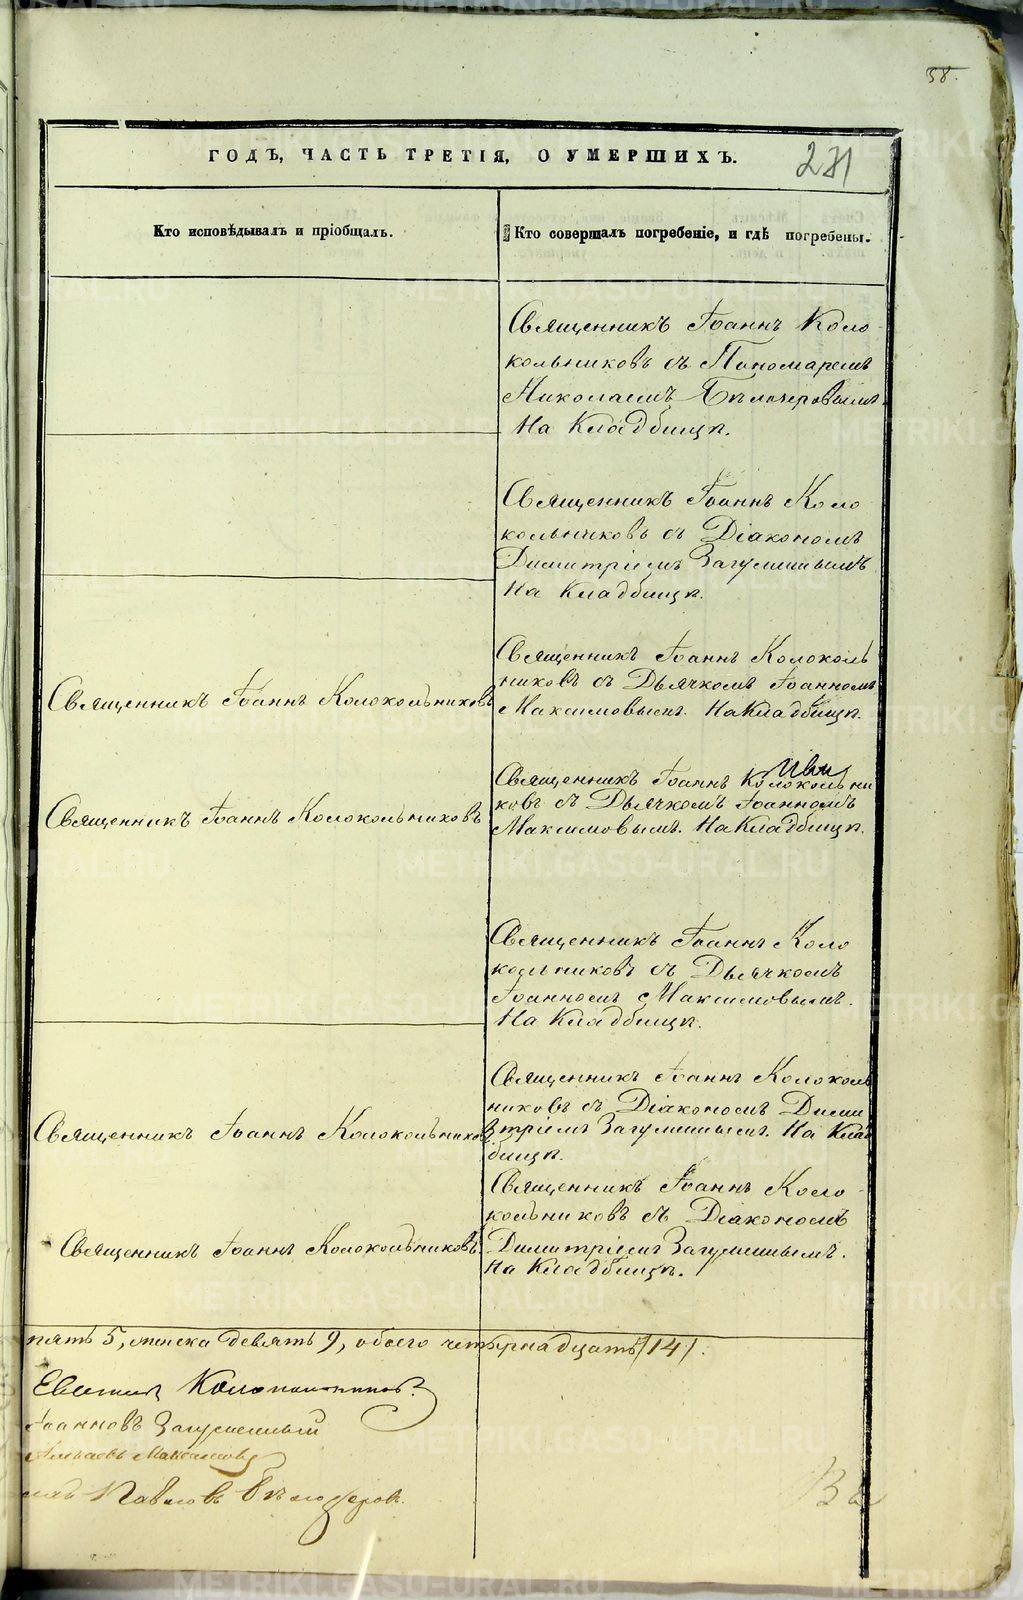 58.
ГОДЪ, ЧАСТЬ ТРЕТІЯ, О УМЕРШИХЪ.
231
Кто исповѣдывалъ и пріобщалъ.
Кто совершалъ погребеніе, и гдѣ погребены.
Священникъ Іоаннъ Коло
кольниковъ съ Пономаремъ
Николаемъ Бѣлозеровымъ.
На Кладбищѣ.
Священникъ Іоаннъ Коло
кольниковъ съ Діакономъ
Димитріемъ Загуменнымъ
На Кладбищѣ.
Священникъ Іоаннъ Колокольниковъ
Священникъ Іоаннъ Колоколь
никовъ съ Дьячкомъ Іоанномъ
Максимовымъ. На Кладбищѣ.
Священникъ Іоаннъ Колокольниковъ
Священникъ Іоаннъ Колокольни
ковъ съ Дьячкомъ Іоанномъ
Максимовымъ. На Кладбищѣ.
Священникъ Іоаннъ Коло
кольниковъ съ Дьячкомъ
Іоанномъ Максимовымъ.
На Кладбищѣ.
Священникъ Іоаннъ Колокольниковъ
Священникъ Іоаннъ Колоколь
никовъ съ Діакономъ Дими
тріемъ Загуменнымъ. На Клад
бищѣ.
Священникъ Іоаннъ Колокольниковъ.
Священникъ Іоаннъ Коло
кольниковъ съ Діакономъ
Димитріемъ Загуменнымъ.
На Кладбищѣ.
пять 5, женска девять 9, обоего четырнадцать /14/.
Колокольниковъ
Іоанновъ Загуменный
Максимовъ
Павловъ Бѣлозеровъ.
METRIKI.GASO-URAL.RU